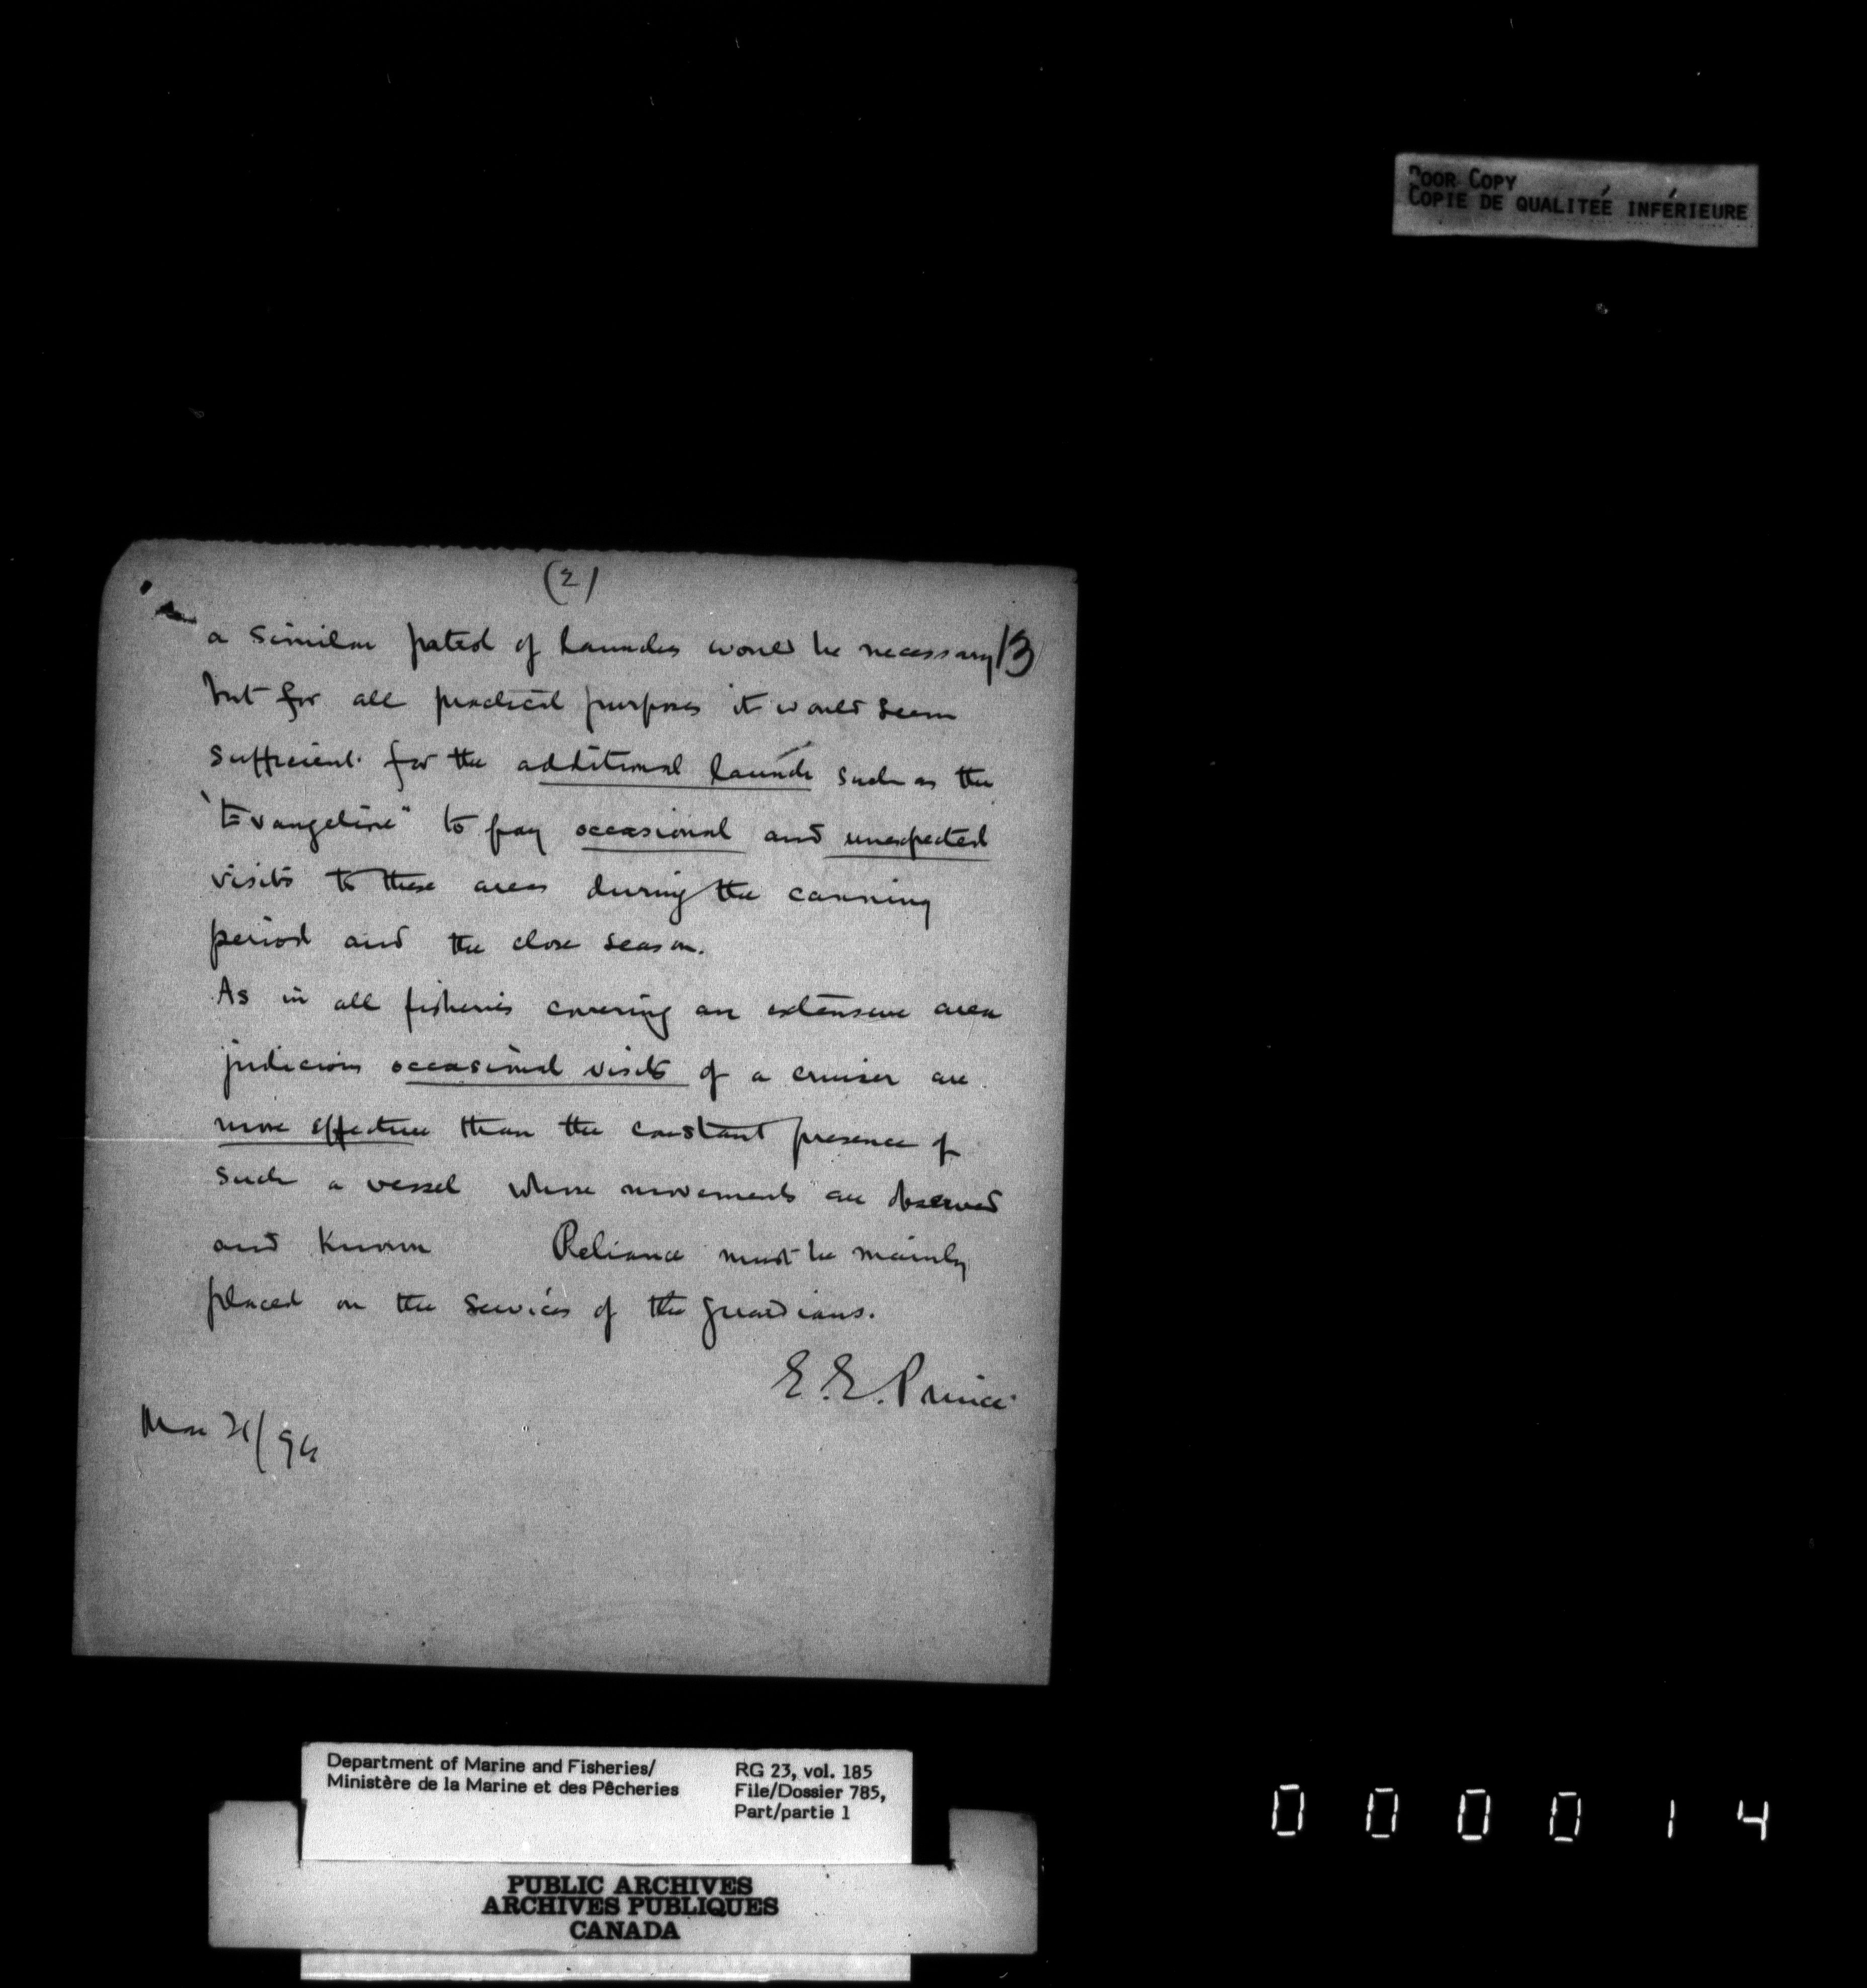 POOR COPY
COPIE DE QUALITÉE INFÉRIEURE
(2)
13
a similar patrol of launches would be necessary
but for all practical purposes it would seem
sufficient for the additional launch such as the
"Evangeline" to pay occasional and unexpected
visits to these areas during the canning
period and the close season.
As in all fisheries covering an extensive area
judicious occasional visits of a cruiser are
more effective than the constant presence of
such a vessel whose movements are observed
and known Reliance must be mainly
placed on the services of the guardians.
E. E. Prince
Department of Marine and Fisheries/
Ministère de la Marine et des Pêcheries
RG 23, vol. 185
File/Dossier 785,
Part/partie 1
PUBLIC ARCHIVES
ARCHIVES PUBLIQUES
CANADA
000014